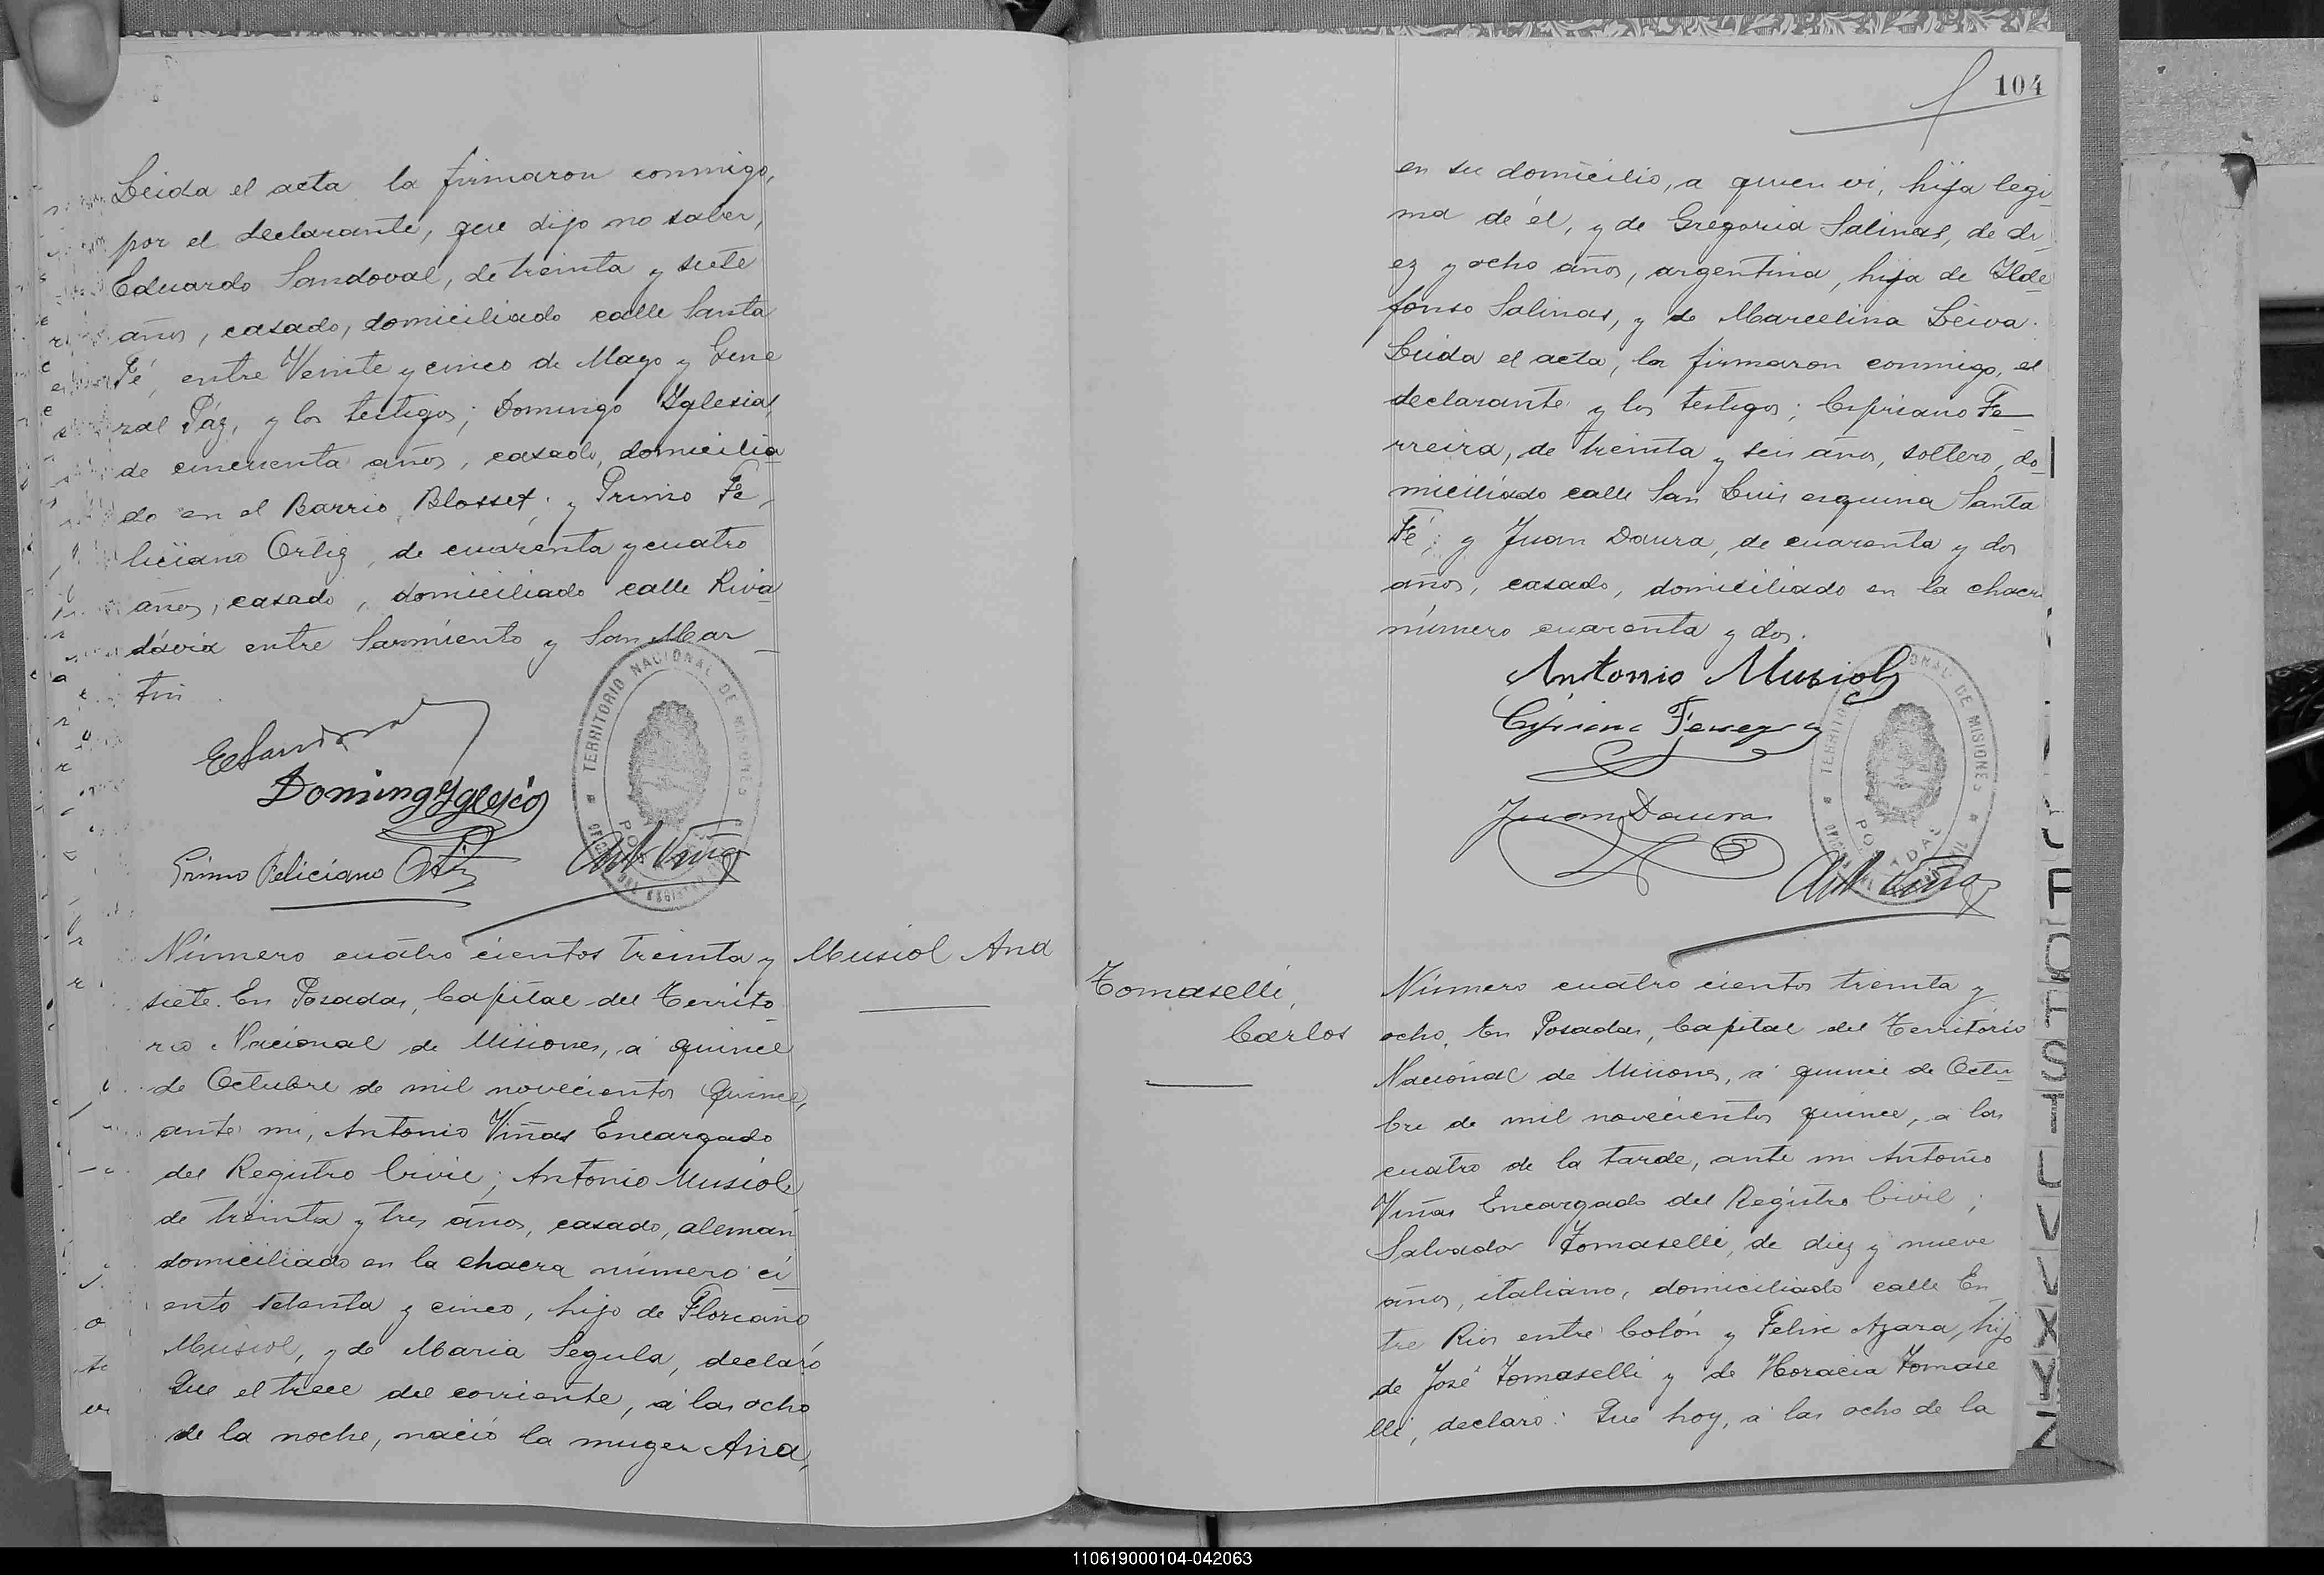 Leida el acta la firmaron conmigo,
por el declarante, que dijo no saber,
Eduardo Sandoval, de treinta y siete
años, casado, domiciliado calle Santa
Fé, entre Veinte y cinco de Mayo y Gene
ral Páz, y los testigos; Domingo Yglesias
de cincuenta años, casado, domicilia
do en el Barrio Blosset; y Primo Fe
liciano Ortiz, de cuarenta y cuatro
años, casado, domiciliado calle Riva
dávia entre Sarmiento y San Mar
tin
ESandoval
Domingo Yglesias
Primo Feliciano Ortiz
TERRITORIO NACIONAL DE MISIONES
POSADAS
OFICINA DEL REGISTRO CIVIL
Ant Viñas
Número cuatro cientos treinta y
siete. En Posadas, Capital del Territo
rio Nacional de Misiones, á quince
de Octubre de mil novecientos quince,
ante mi, Antonio Viñas Encargado
del Registro Civil; Antonio Musiol
de treinta y tres años, casado, aleman
domiciliado en la chacra número ci
ento setenta y cinco, hijo de Floreano
Musiol, y de Maria Segula, declaró
Que el trece del corriente, á las ocho
de la noche, nació la muger Ana,
Musiol Ana
104
en su domicilio, a quien vi, hija legi
ma de él, y de Gregoria Salinas, de di
ez y ocho años, argentina, hija de Ylde
fonso Salinas, y de Marcelina Leiva.
Leida el acta, la firmaron conmigo, el
declarante y los testigos; Cipriano Fe
rreira, de treinta y seis años, soltero, do
miciliado calle San Luis esquina Santa
Fé; y Juan Daura, de cuarenta y dos
años, casado, domiciliado en la chacra
número cuarenta y dos.
Antonio Musiol
Cipriano Ferreyra
Juan Daura
TERRITORIO NACIONAL DE MISIONES
POSADAS
OFICINA DEL REGISTRO CIVIL
Ant Viñas
Tomaselli,
Cárlos
Número cuatro cientos treinta y
ocho. En Posadas, Capital del Territorio
Nacional de Misiones, á quince de Octu
bre de mil novecientos quince, a las
cuatro de la tarde, ante mi Antonio
Viñas Encargado del Registro Civil;
Salvador Tomaselli, de diez y nueve
años, italiano, domiciliado calle En
tre Rios entre Colón y Felix Azara, hijo
de José Tomaselli y de Horacia Tomase
lli, declaró: Que hoy, á las ocho de la
U
V
X
Y
Z
110619000104-042063